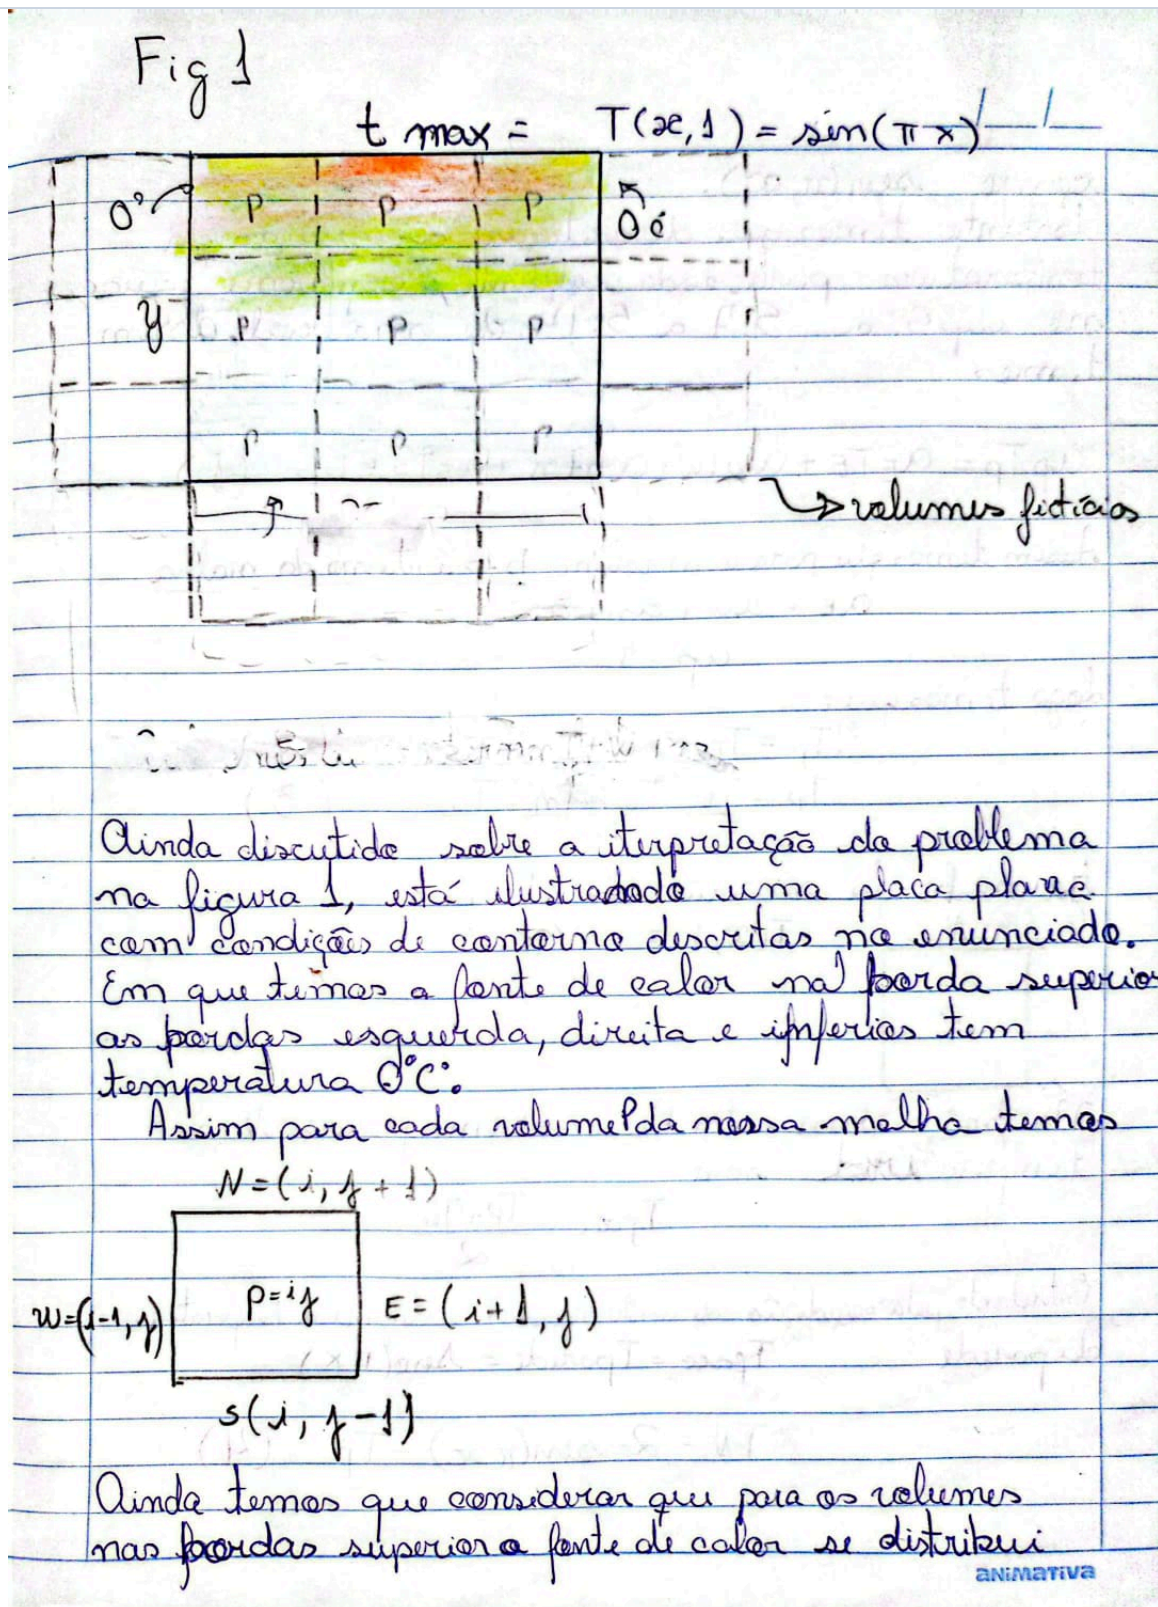 Fig 1
t max = T(x, 1) = sin(π x)
0° P P P 0c
y P P P
P P P
volumes fictícios
Ainda discutido sobre a iterpretação do problema
na figura 1, está ilustradado uma placa plana
com condições de contorno descritas no enunciado.
Em que temos a fonte de calor na borda superior
as bordas esquerda, direita e inferios tem
temperatura 0°C.
Assim para cada volume P da nossa malha temos
N=(i, j+1)
W=(i-1, j) P=ij E=(i+1, j)
S(i, j-1)
Ainda temos que considerar que para os volumes
nas bordas superior a fonte de calor se distribui
animativa